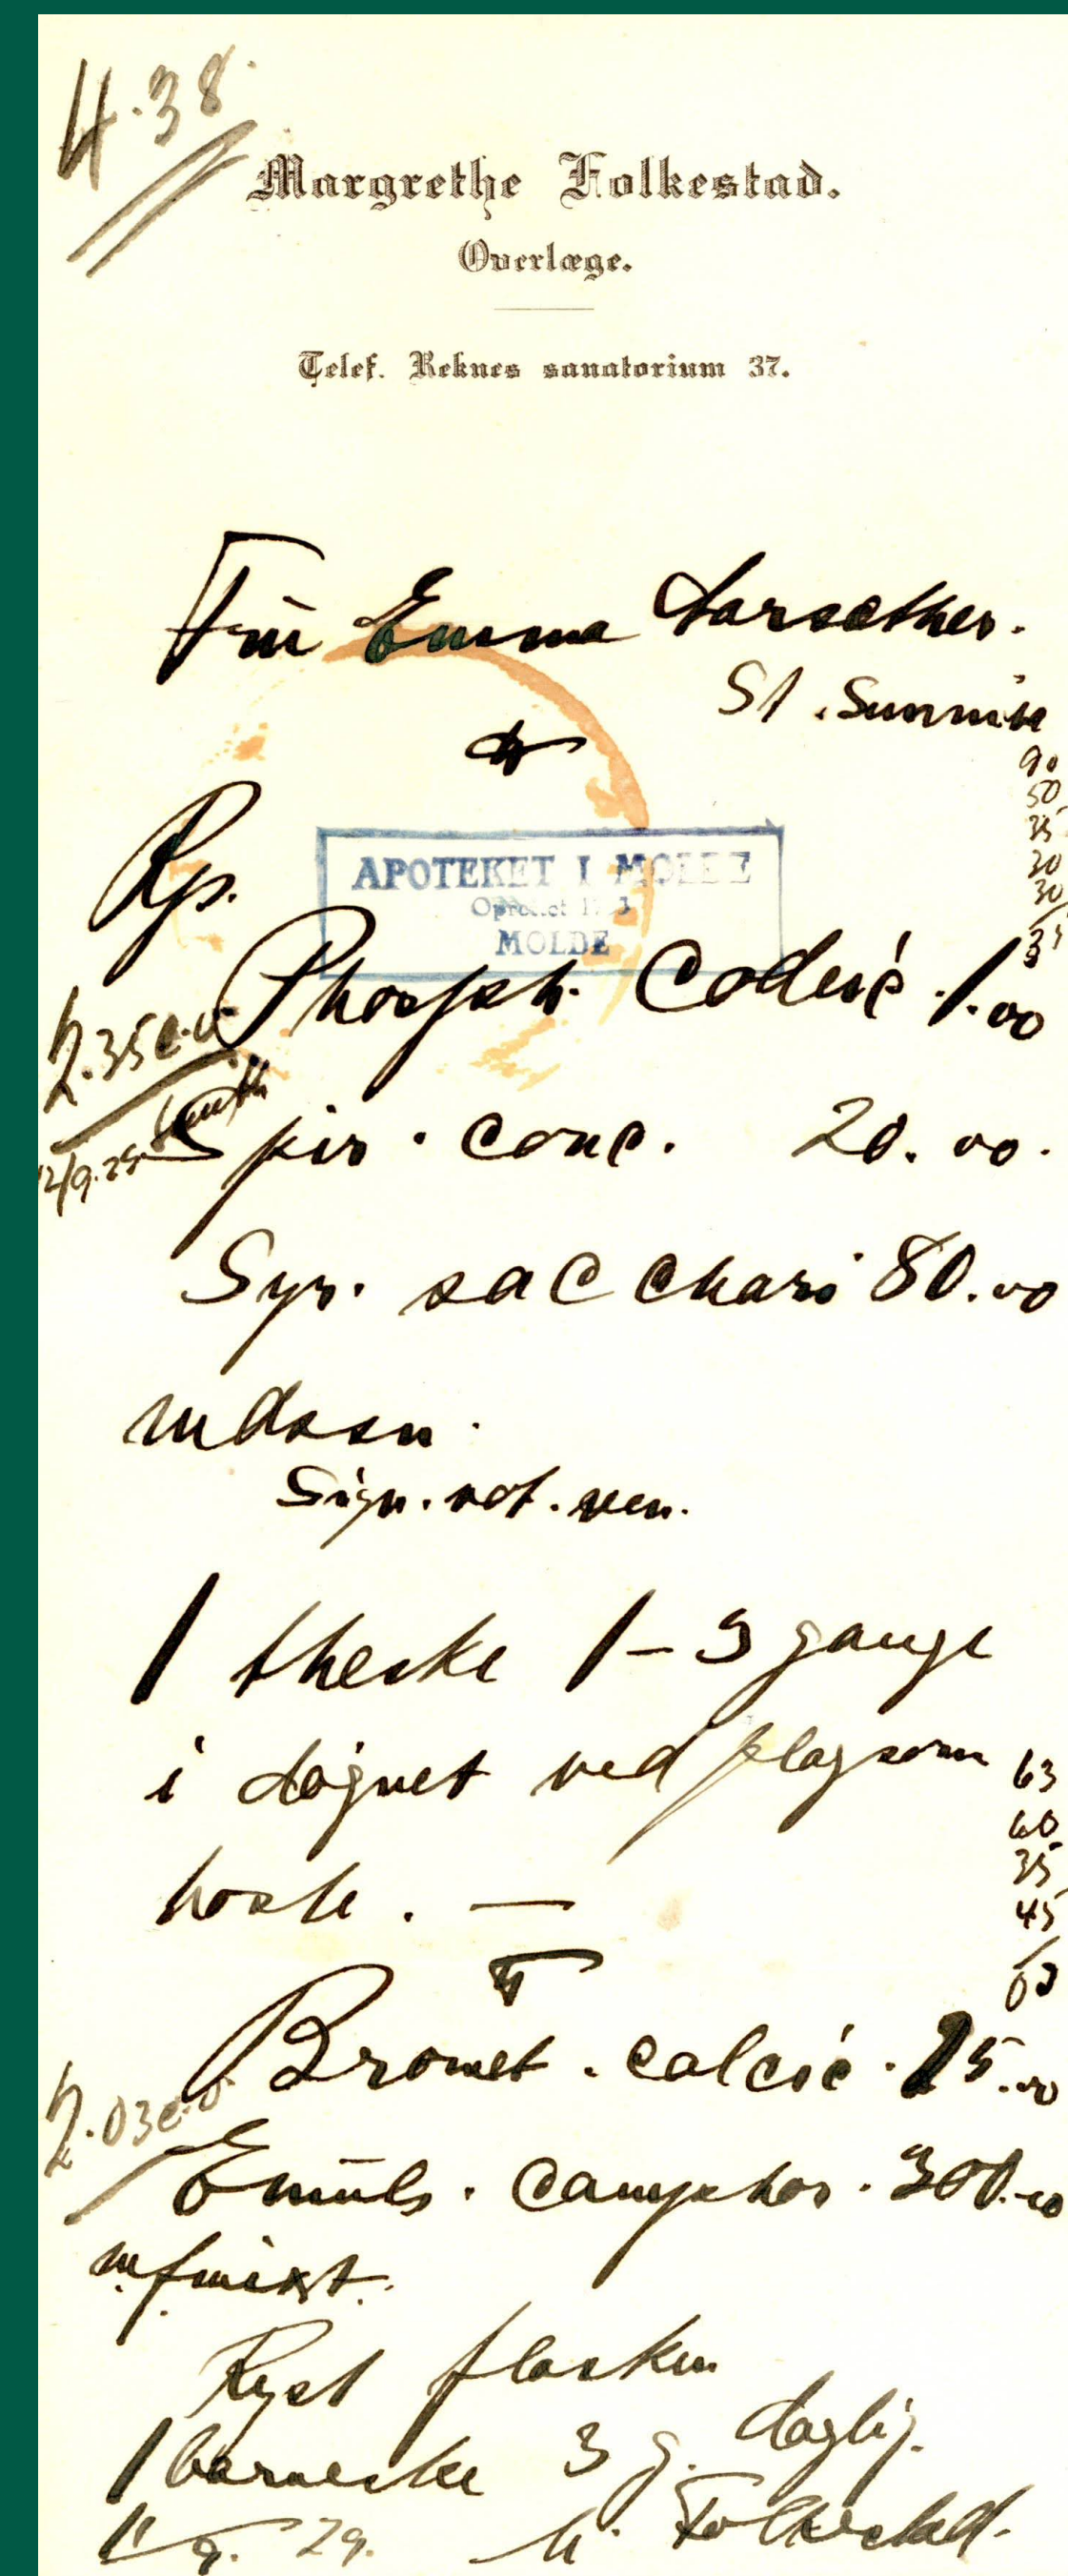 4.38.
Margrethe Folkestad.
Overlæge.
Telef. Reknes sanatorium 37.
Frü Emma Larsæther.
St.
90
50
35
30
30
Rp.
APOTEKET I MOLDE
Oprettet
MOLDE
Phosph. Codeic. 1.00
2.35
Spir. conc. 20.00.
12/9.29
Syr. sacchari 80.00
Sign. not. ven.
1 theske 1-3 gange
i døgnet ved plagsom
63
60
35
45
hoste. —
03
Bromet. calcic. 15.00
2.03
Emüls. camphor. 300.00
m.f.mixt.
Ryst flasken
1 barneske 3 g. daglig.
11/9. 29. M. Folkestad.